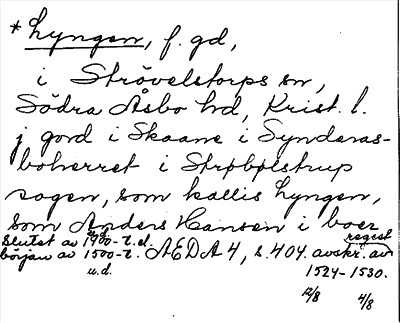 *Lyngen, f. gd,
i Strövelstorps sn,
Södra Åsbo hd, Krist. l.
j gord i Skaane i Synderas-
boherret i Strøbølstrup
sogen, som kallis Lyngen,
som Anders Hansen i boer
slutet av 1400-t. el. regest
början av 1500-t. ÆDA 4, s. 404. avskr. av
u.d. 1524-1530.
12/8 4/8